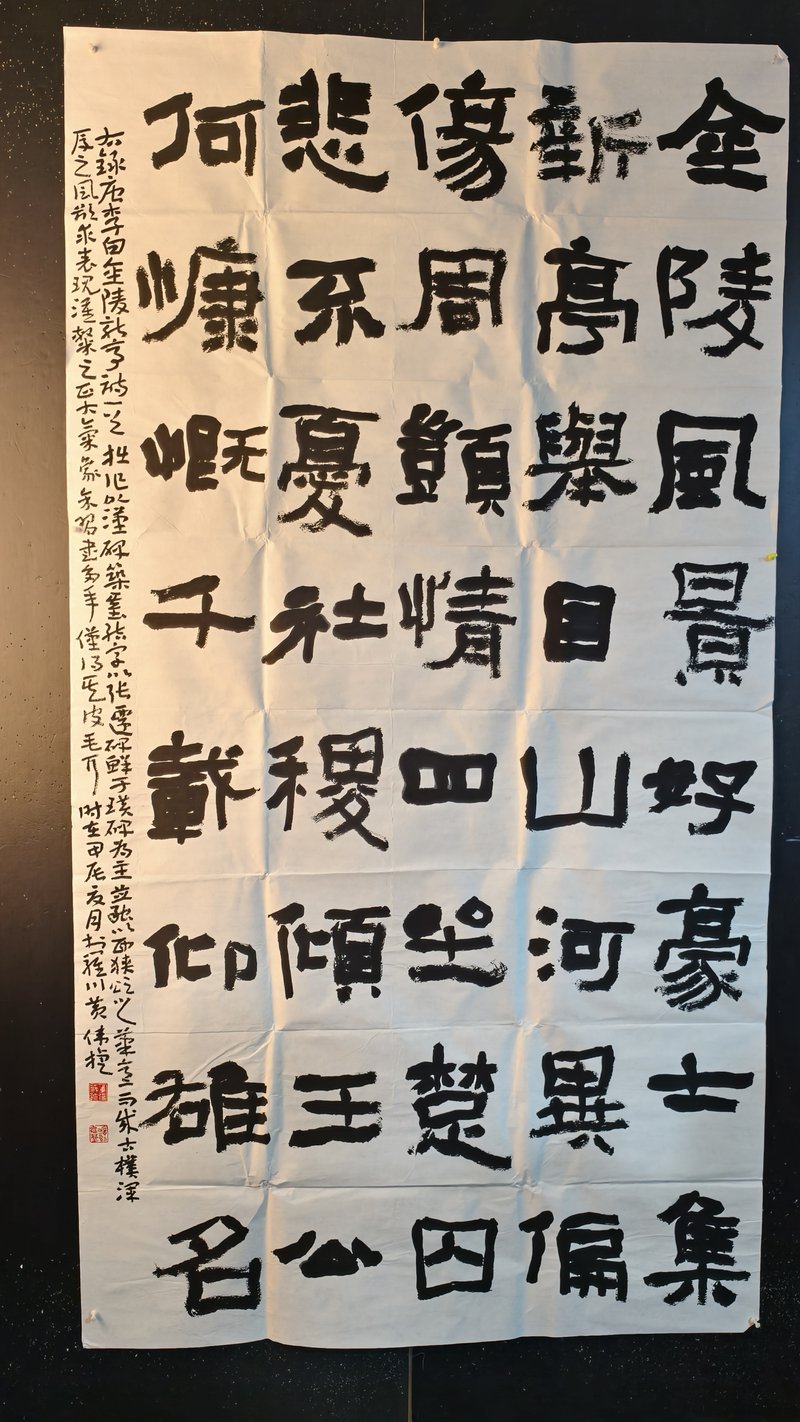 金陵風景好豪士集
新亭舉目山河異偏
傷周顗情四坐楚囚
悲不憂社稷傾王公
何慷慨千載仰雄名
右錄唐李白金陵新亭詩一首 拙作以漢碑築基结字以张遷碑鲜于璜碑為主並融以西狹頌之筆意而成古樸渾
厚之风欲求表现漢隸之正大氣象余習書多年僅得其皮毛耳 时在甲辰夏月於川黄伟